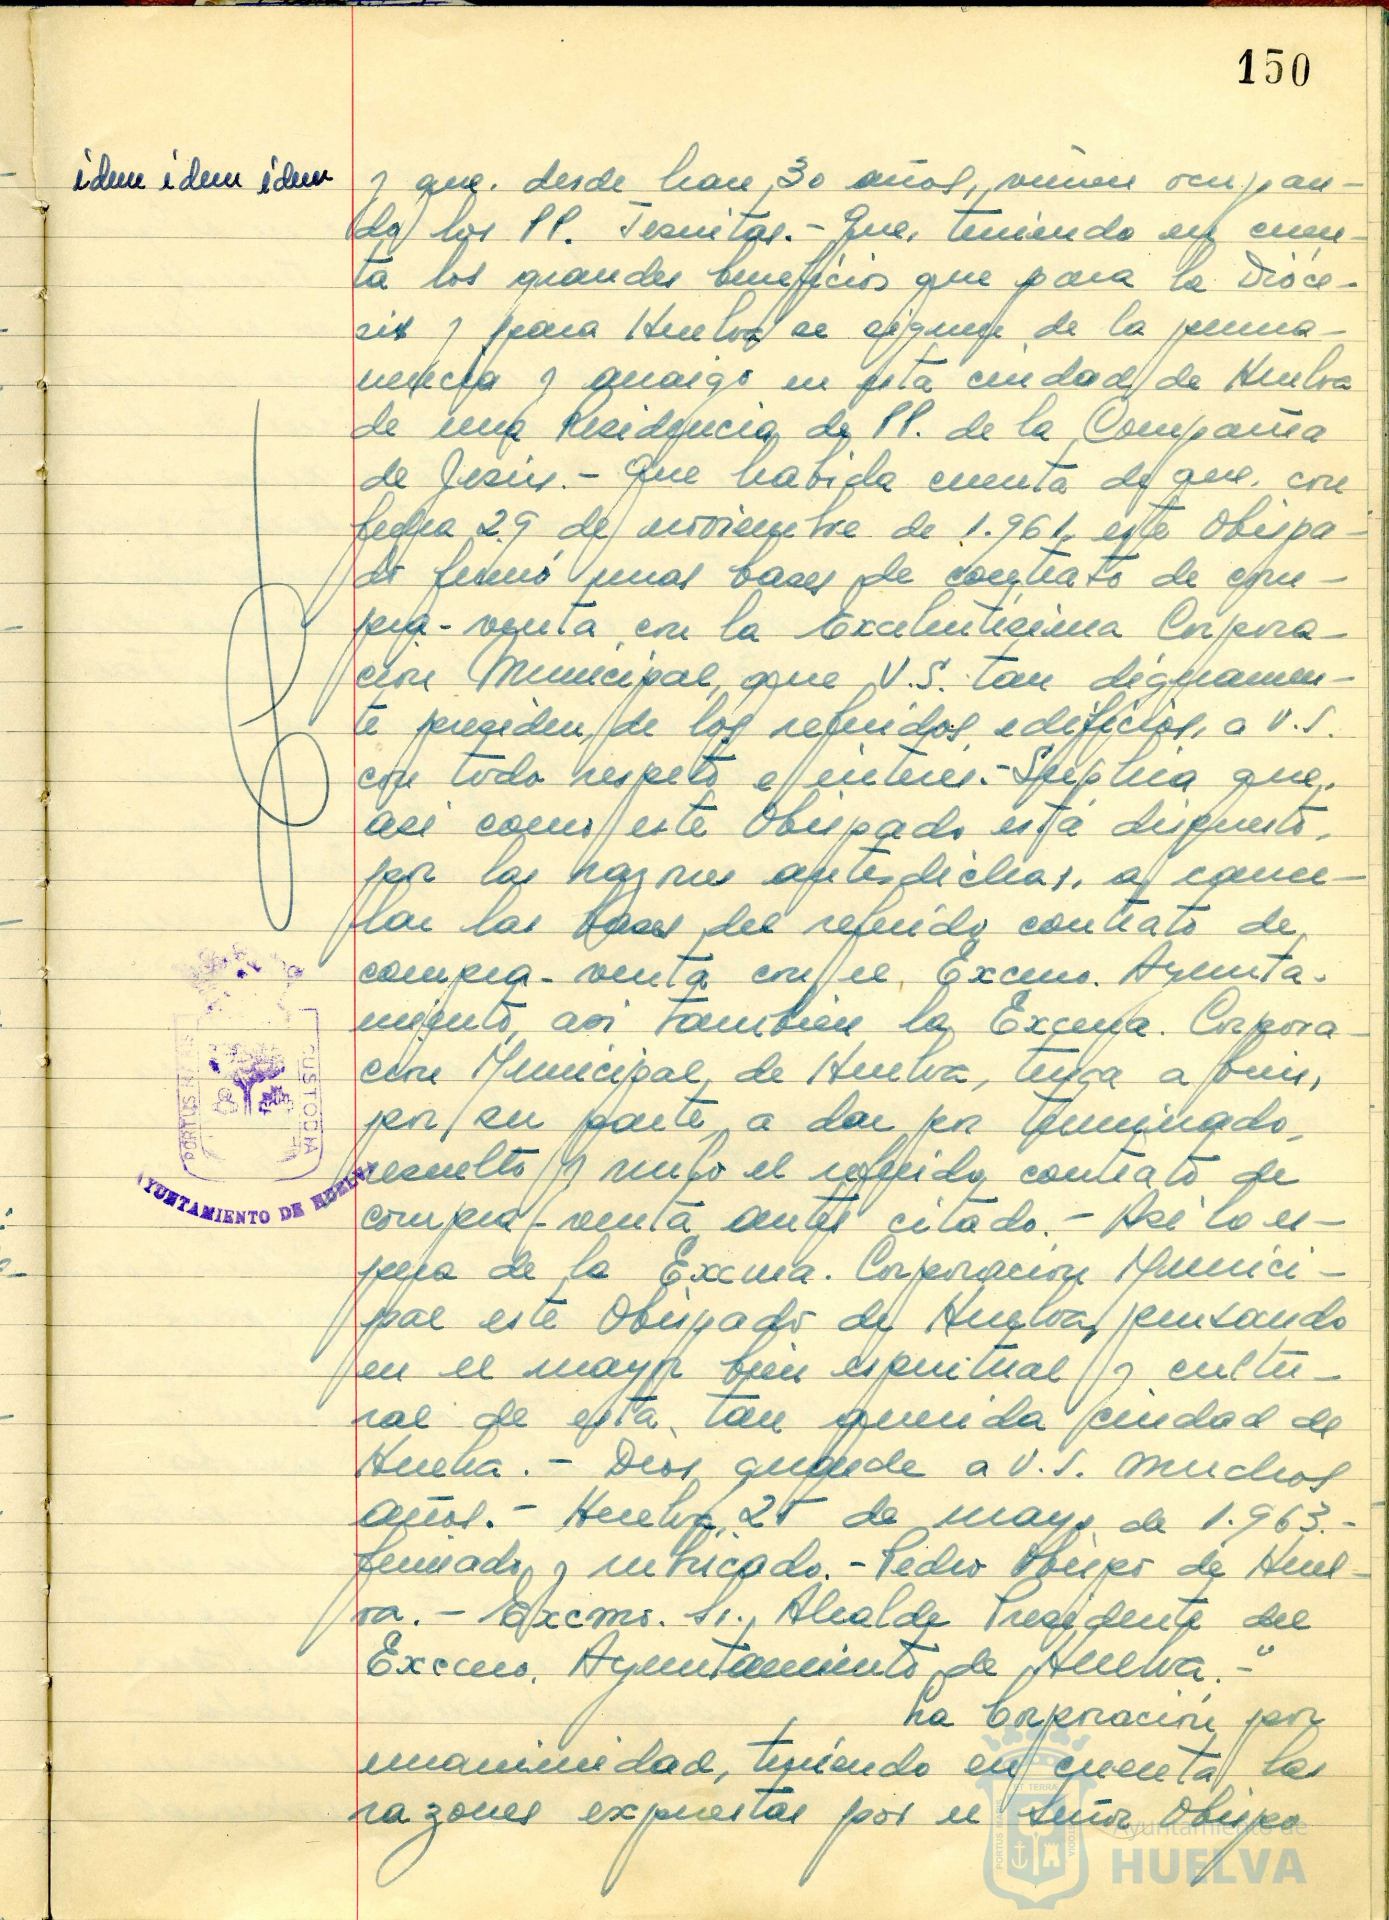 150
idem idem idem
y que, desde hace 30 años, vienen ocupan-
do los PP. Jesuitas.- Que, teniendo en cuen-
ta los grandes beneficios que para la Dióce-
sis y para Huelva se siguen de la perma-
nencia y arraigo en esta ciudad de Huelva
de una Residencia de PP. de la Compañía
de Jesús.- Que habida cuenta de que, con
fecha 29 de noviembre de 1.961, este Obispa-
do firmó unas bases de contrato de com-
pra-venta con la Excelentísima Corpora-
ción Municipal, que V.S. tan dignamen-
te preside, de los referidos edificios, a V.S.
con todo respeto e interés.- Suplica que,
así como este Obispado está dispuesto,
por las razones antedichas, a cance-
lar las bases del referido contrato de
compra-venta con el Excmo. Ayunta-
miento, así también la Excma. Corpora-
ción Municipal, de Huelva, tenga a bien,
por su parte, a dar por terminado,
resuelto y nulo el referido contrato de
compra-venta antes citado.- Así lo es-
pera de la Excma. Corporación Munici-
pal este Obispado de Huelva, pensando
en el mayor bien espiritual y cultu-
ral de esta tan querida ciudad de
Huelva.- Dios guarde a V.S. muchos
años.- Huelva, 25 de mayo de 1.963.-
firmado y rubricado.- Pedro Obispo de Huel-
va.- Excmo. Sr. Alcalde Presidente del
Excmo. Ayuntamiento de Huelva.-"
La Corporación por
unanimidad, teniendo en cuenta las
razones expuestas por el Señor Obispo
PORTUS MARIS
CUSTODIA
AYUNTAMIENTO DE HUELVA
PORTUS MARIS ET TERRAE CUSTODIA
Ayuntamiento de
HUELVA